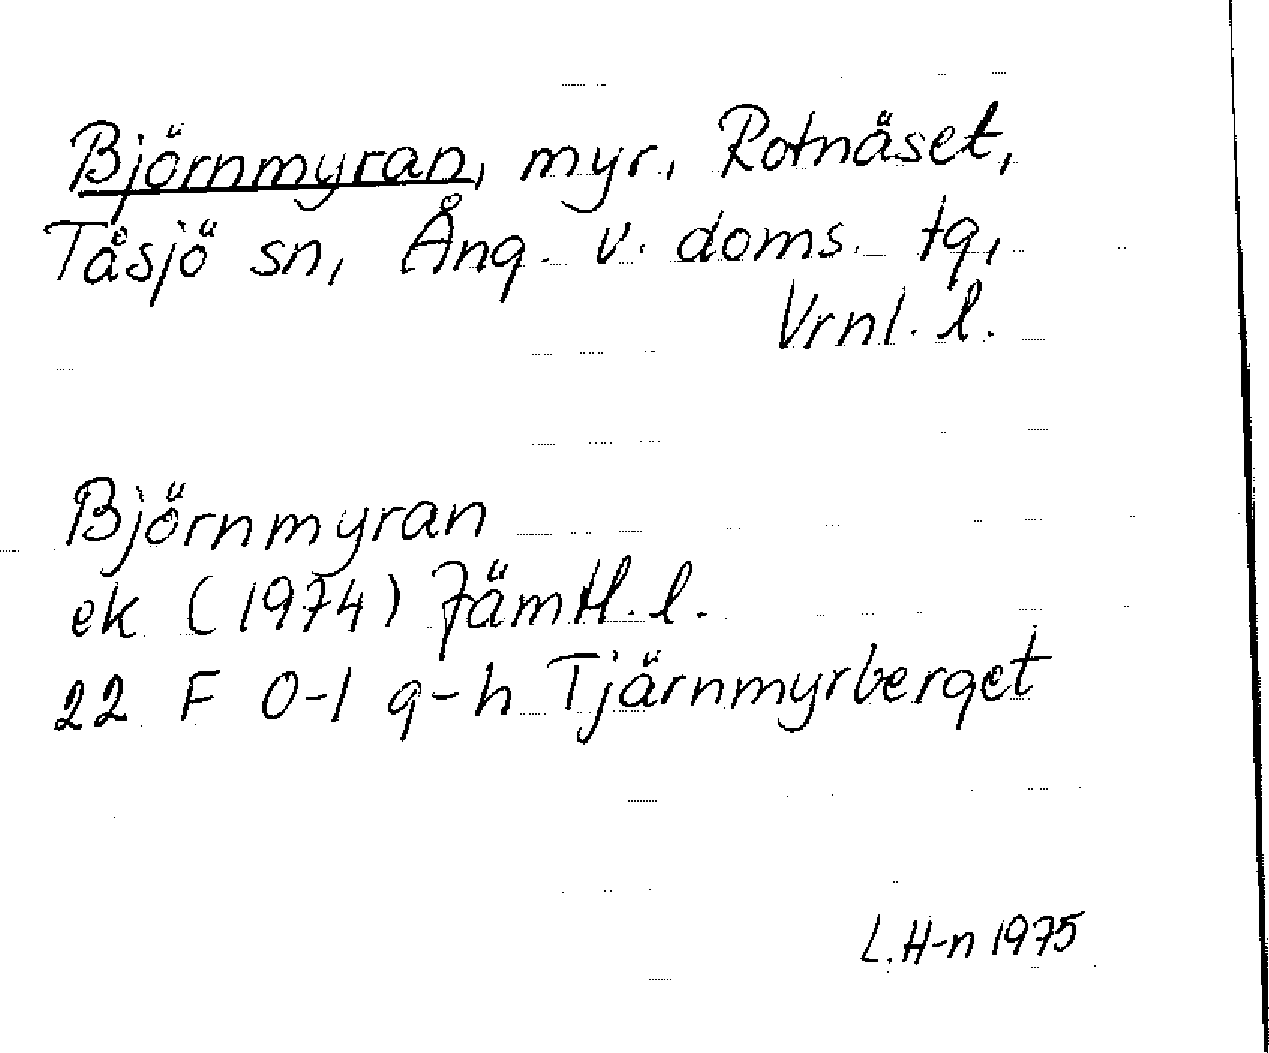 Björnmyran, myr, Rotnäset,
Tåsjö sn, Ång. v. doms. tg,
Vrnl. l.
Björnmyran
ek (1974) Jämtl. l.
22 F 0-1 g-h Tjärnmyrberget
L. H-n 1975